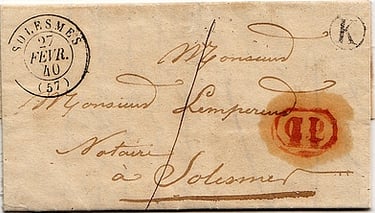 SOLESMES
27
FÉVR.
40
(57)
K
Monsieur
Monsieur Lempereur
1D
Notaire
à Solesmes